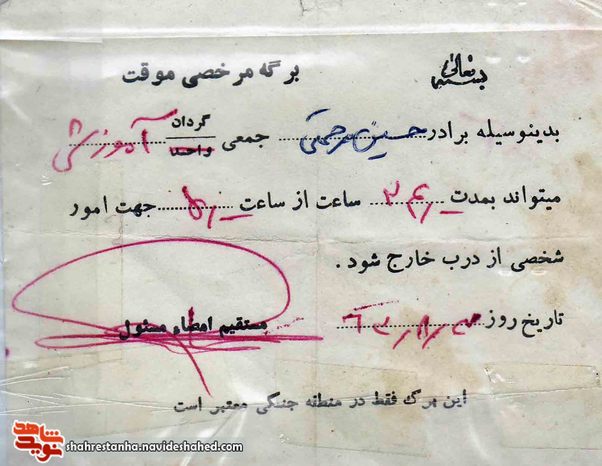 بسمه تعالی
برگه مرخصی موقت
بدینوسیله برادر حسین مرحمتی جمعی گردان واحد آموزشی
میتواند بمدت ۲۴ ساعت از ساعت جهت امور
شخصی از درب خارج شود .
تاریخ روز
مستقیم امضاء مسئول
این برگ فقط در منطقه جنگی معتبر است
نوید شاهد
shahrestanha.navideshahed.com